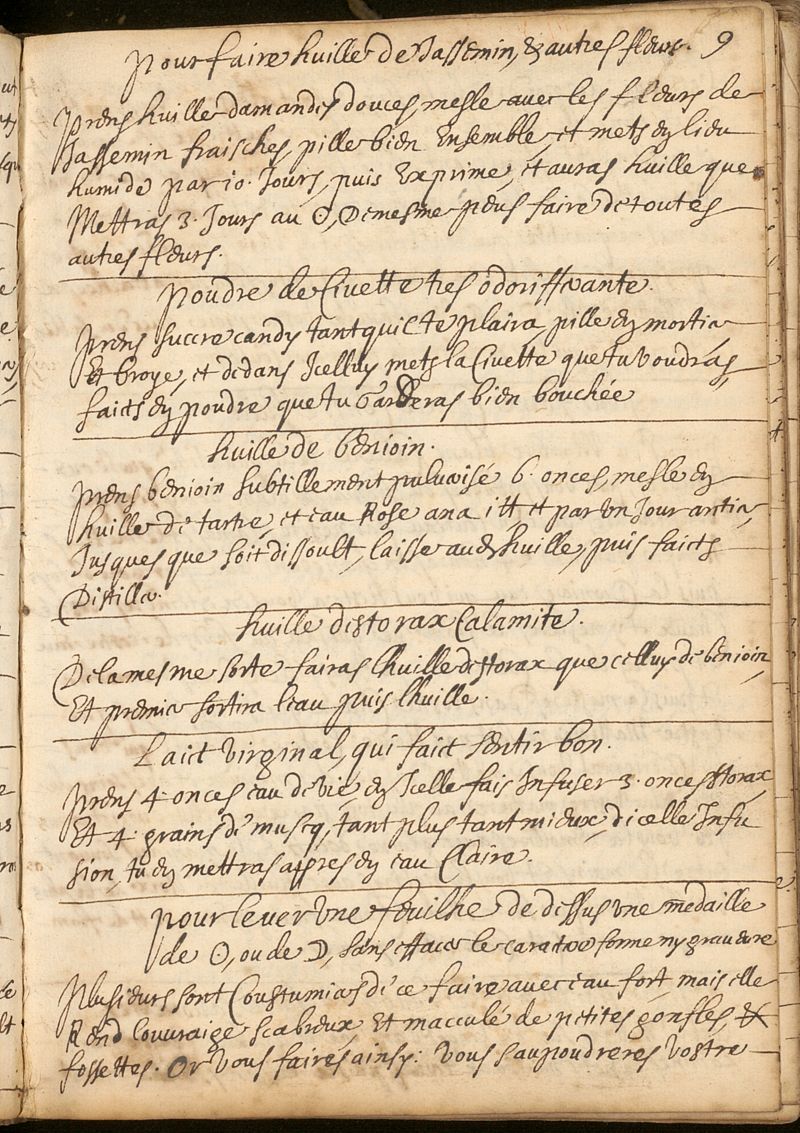 9
pour faire huille de Jassemin, & autres fleurs.
prens huille damandes douces, mesle avec les fleurs de
Jassemin fraisches, pille bien Ensemble, et mets en lieu
humide par 10. Jours, puis Exprime, et auras huille que
Mettras 3. Jours au ☉, De mesme peus faire de toutes
autres fleurs.
poudre de Civette tres odorifferante.
prens succre candy tant quil te plaira, pille en mortier
Et broye, et dedans Jcelluy mets la Civette que tu voudras,
faicts en poudre que tu garderas bien bouchée
huille de benioin.
prens benioin subtillement pulverisé 6. onces, mesle en
huille de tartre, et eau Rose ana i ℔ et par un Jour entier
Jusques que soit dissoult, laisse aud huille, puis faicts
Distiller.
huille destorax Calamite.
De la mesme sorte fairas lhuille destorax que celluy de benioin
Et premier sortira leau puis lhuille.
Laict virginal, qui faict sentir bon.
prens 4. onces eau de vie, en Jcelle fais Infuser 3. onces storax,
Et 4. grains de muscq, tant plus tant mieux, dicelle Infu
sion, tu en mettras appres en eau Claire.
pour lever une feuilhe de dessus une medaille
de ☉, ou de ☽, sans effacer le caractere forme ny graveure
Plusieurs sont Coustumiers de ce faire avec eau fort, mais elle
Rend louvraige scabreux, Et macculé de petites gonfles, &
fossettes. Or vous faires ainsy: vous saupoudreres vostre